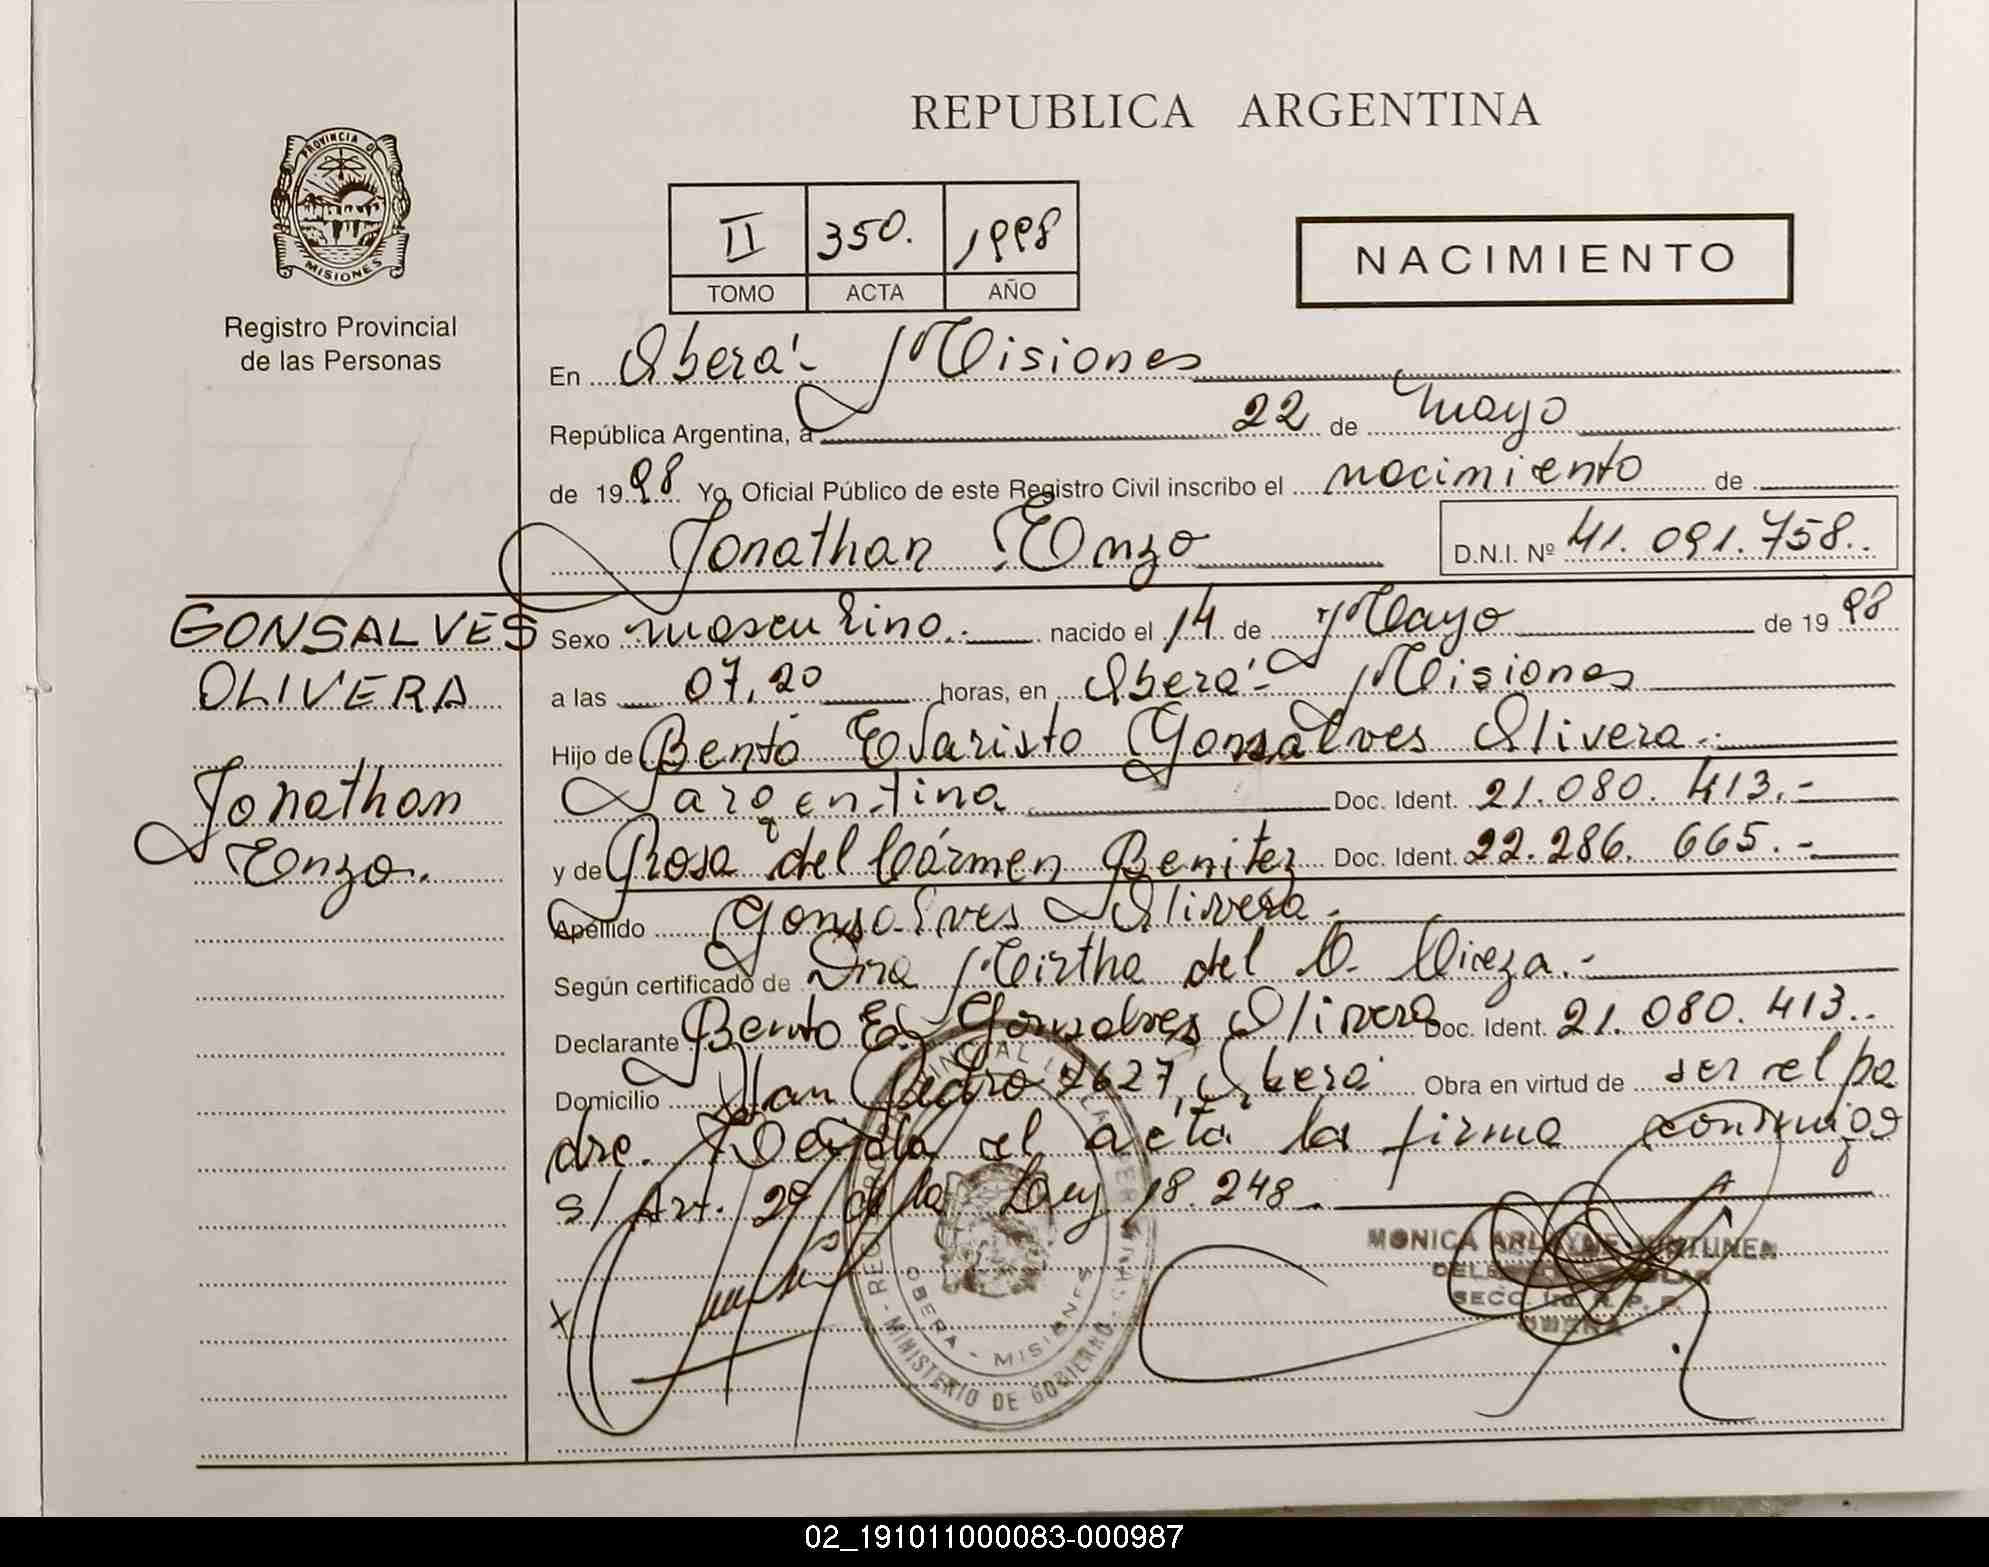 PROVINCIA DE
MISIONES
Registro Provincial
de las Personas
REPUBLICA ARGENTINA
II 350. 1998
TOMO ACTA AÑO
NACIMIENTO
En Oberá - Misiones
República Argentina, a 22 de Mayo
de 1998 Yo, Oficial Público de este Registro Civil inscribo el nacimiento de
Jonathan Enzo D.N.I. Nº 41.091.758..
GONSALVES
OLIVERA
Jonathan
Enzo.
Sexo masculino.- nacido el 14 de Mayo de 1998
a las 07,20 horas, en Oberá - Misiones
Hijo de Bento Evaristo Gonsalves Olivera.-
argentina Doc. Ident. 21.080.413.-
y de Rosa del Cármen Benitez Doc. Ident. 22.286.665.-
Apellido Gonsalves Olivera.-
Según certificado de Dra Mirtha del C.
Declarante Bento E. Gonsalves Olivera Doc. Ident. 21.080.413..
Domicilio San Pedro 2627, Oberá Obra en virtud de ser el pa
dre. el acta la firma conmigo
s/ Art. 2º de la Ley 18.248.
OBERA - MISIONES
MINISTERIO DE GOBIERNO
MONICA
SECC.
OBERA
02_191011000083-000987